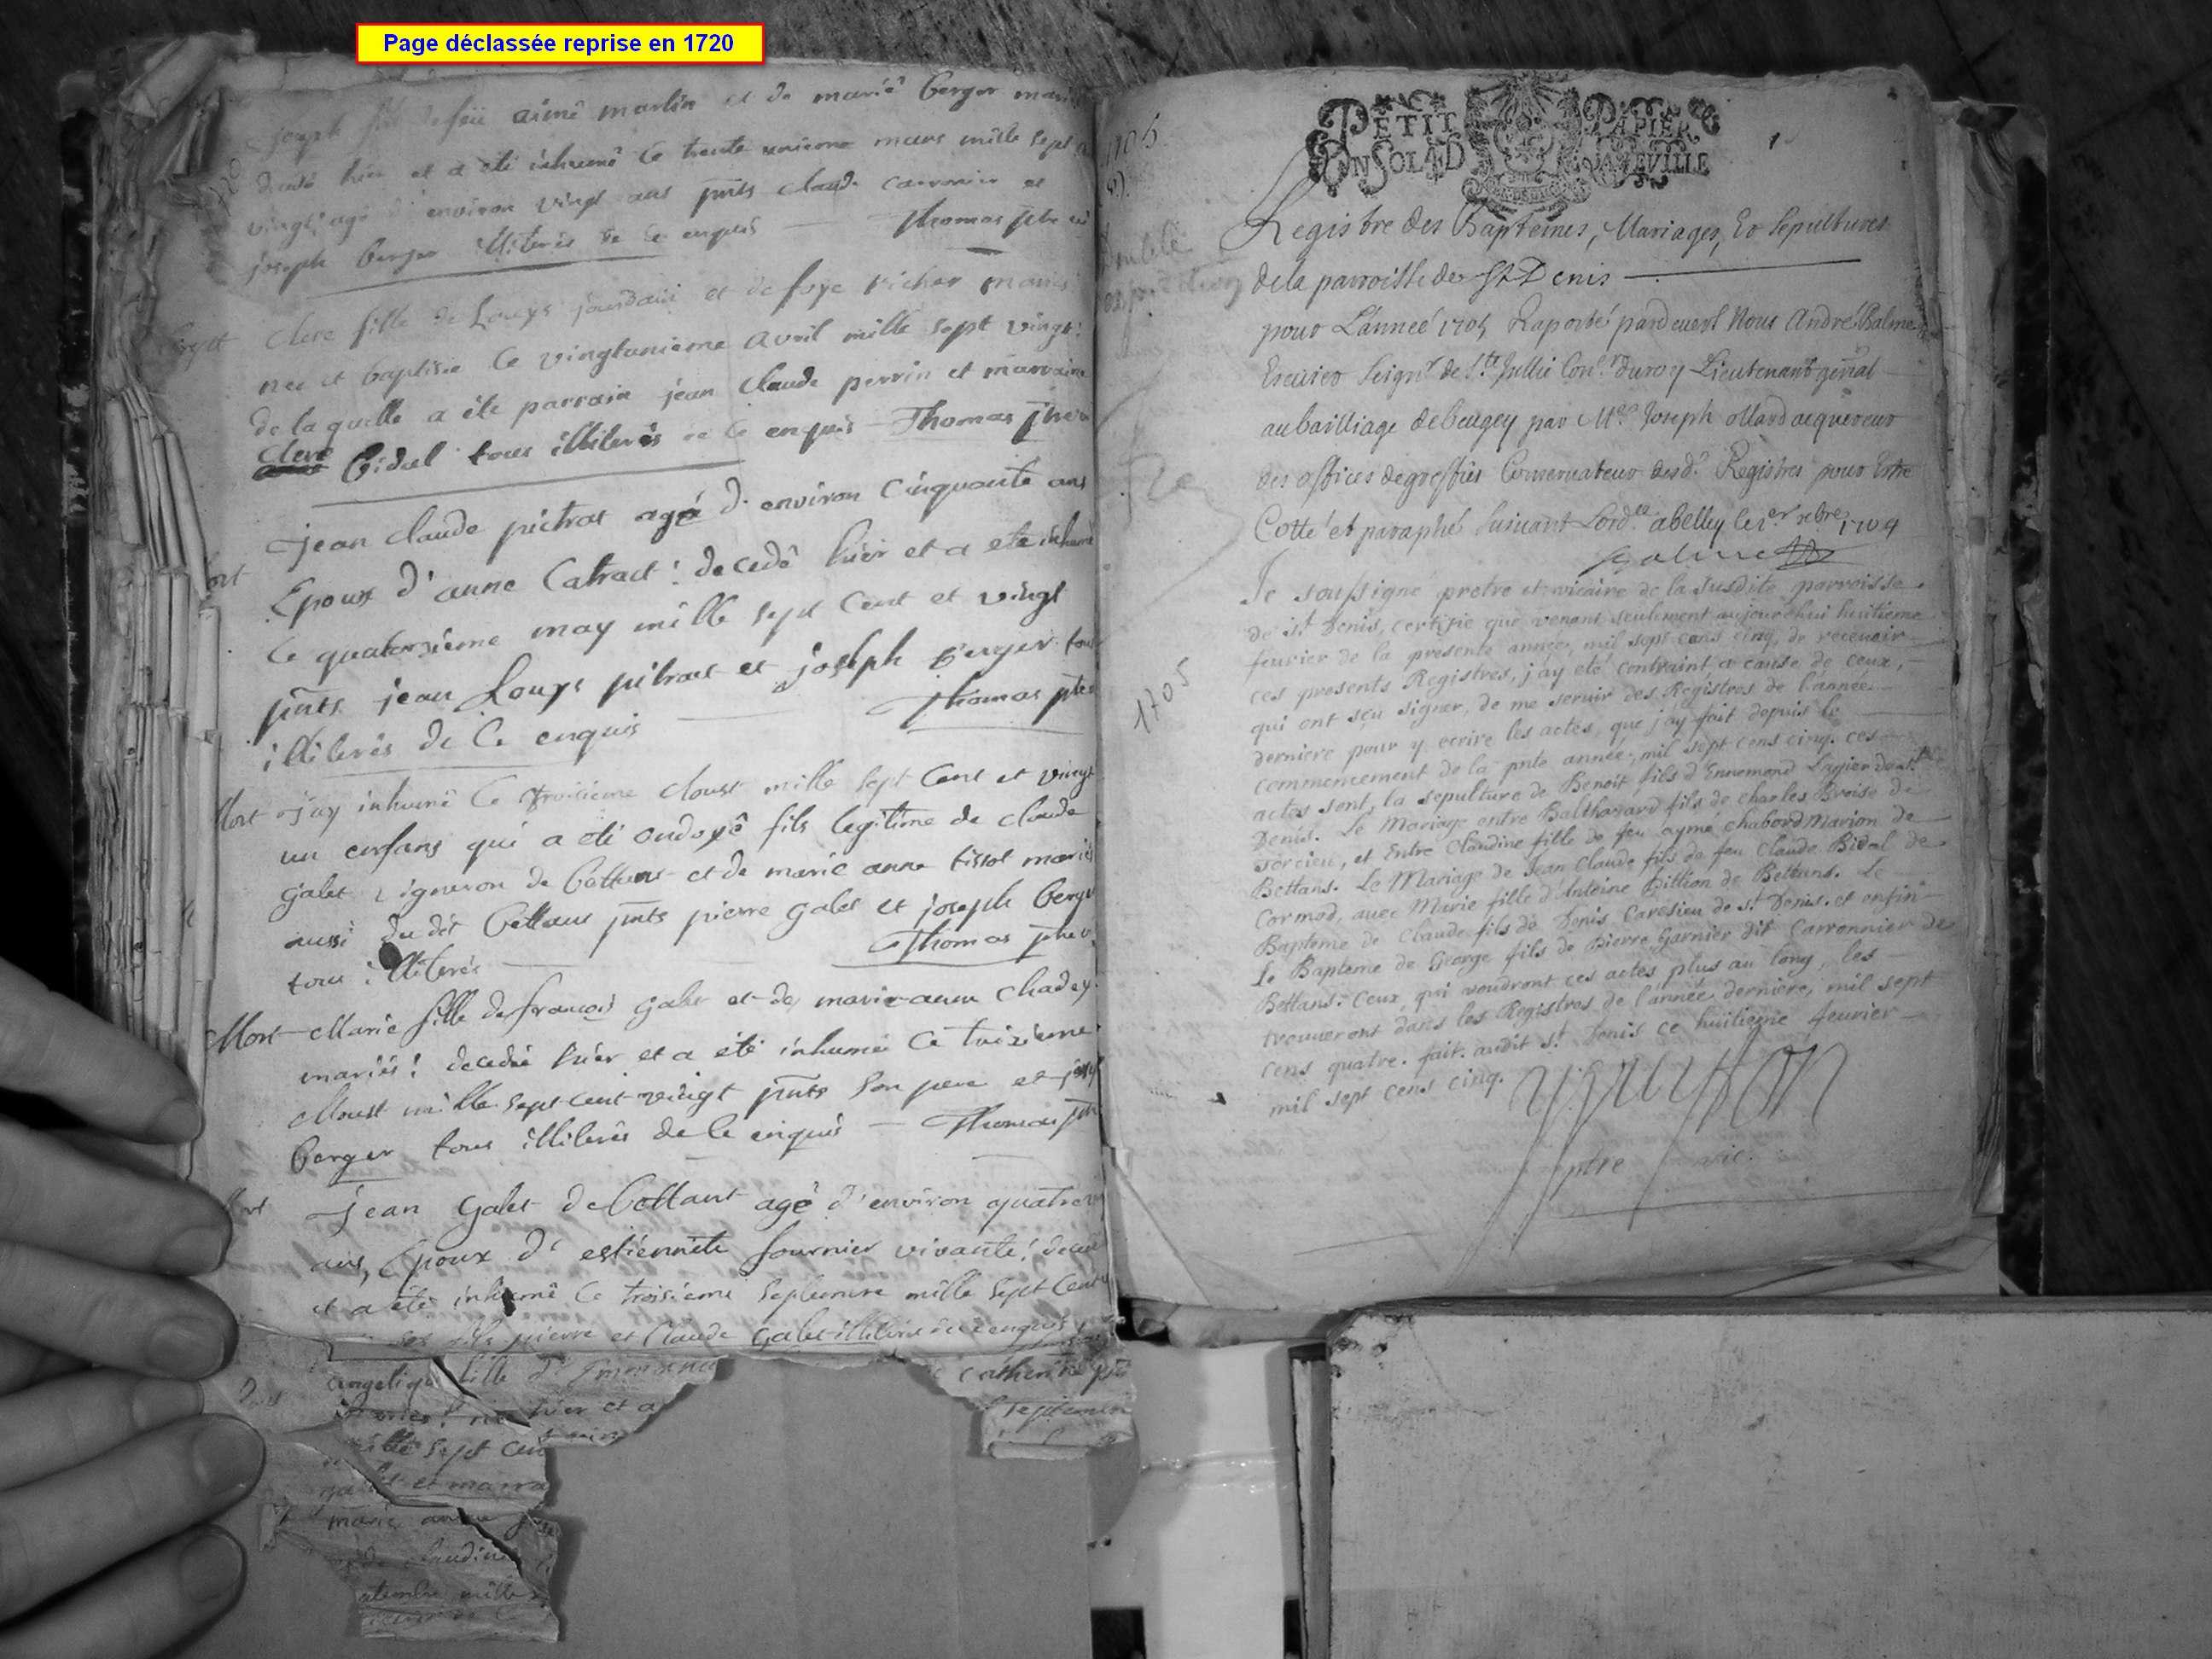 Page déclassée reprise en 1720
joseph fils de feu aimé martin et de marie berger
et a été inhumé le trente unieme mars mille sept
vingt, agé d'environ vingt ans pnts claude carronier et
joseph berger illiterés de ce enquis Thomas ptre
Clere fille de Louys jourdain et de foye richer mariés
nee et baptisée le vingtunieme avril mille sept vingt:
de laquelle a été parrain jean claude perrin et marraine
Clere bidal tous illiterés de ce enquis Thomas ptre
Mort
jean claude pictrat agé d'environ cinquante ans
Epoux d'anne Catract: decedé hier et a eté inhumé
le quatorzième may mille sept cent et vingt
pnts jean Louys pitrat et joseph berger tous
illiterés de ce enquis Thomas ptre
Mort j'ay inhumé le troisieme Aoust mille sept cent et vingt
un enfans qui a été ondoyé fils legitime de claude
galet vigneron de bettant et de marie anne tissot mariés
aussi du dit bettant pnts pierre galet et joseph berger
tous illiterés Thomas ptre
Mort Marie fille de françois galet et de marie anne chadey
mariés: decedée hier et a été inhumée le troisieme
Aoust mille sept cent vingt pnts son pere et joseph
berger tous illiterés de ce enquis Thomas ptre
Mort
Jean Galet de bettant agé d'environ quatre
ans, Epoux d'estiennete fournier vivante:
et a été inhumé le troisieme septembre mille sept cent
ses fils pierre et Claude galet illiterés de ce enquis
angelique fille d'
hier et a
mille sept cent
et marra
marie anne
claudine
mille
catherine
septembre
1705
PETIT PAPIER
UN SOL 4 D LA FEVILLE
Registre des Baptemes, Mariages, Et Sepultures
de la parroisse de St Denis
pour L'anneé 1705 Raporté pardevant Nous André Balme
Escuier Seignr de Ste Jullie Conr du roy Lieutenant gnral
au bailliage de beugey par Mre Joseph ollard acquereur
des offices de greffier Conservateur desd. Registres pour Estre
Cotté et paraphé suivant Lordce a belley le 1er xbre 1704
Balme
Je soussigné pretre et vicaire de la susdite parroisse
de st Denis, certifie que venant seulement aujourdhui huitieme
feurier de la presente année, mil sept cens cinq, de recevoir
ces presents Registres, j'ay eté contraint, a cause de ceux,
qui ont sçu signer, de me servir des Registres de l'année
derniere pour y ecrire les actes, que j'ay fait depuis le
commencement de la pnte année, mil sept cens cinq. ces
actes sont, la sepulture de Benoit fils d'Ennemond Lagier de st
Denis. Le Mariage entre Balthazard fils de charles Broise de
Torcieu, et Entre Claudine fille de feu aymé chabord marion de
Bettans. Le Mariage de Jean Claude fils de feu Claude Bidal de
Cormod, avec Marie fille d'Antoine Billion de Bettans. Le
Bapteme de Claude fils de Denis Caresieu de st Denis. et enfin
le Bapteme de George fils de Pierre Garnier dit Carronnier de
Bettans. Ceux, qui voudront ces actes plus au long, les
trouveront dans les Registres de l'année derniere, mil sept
cens quatre. fait. audit st Denis ce huitieme feurier
mil sept cens cinq.
ptre vic.
1705